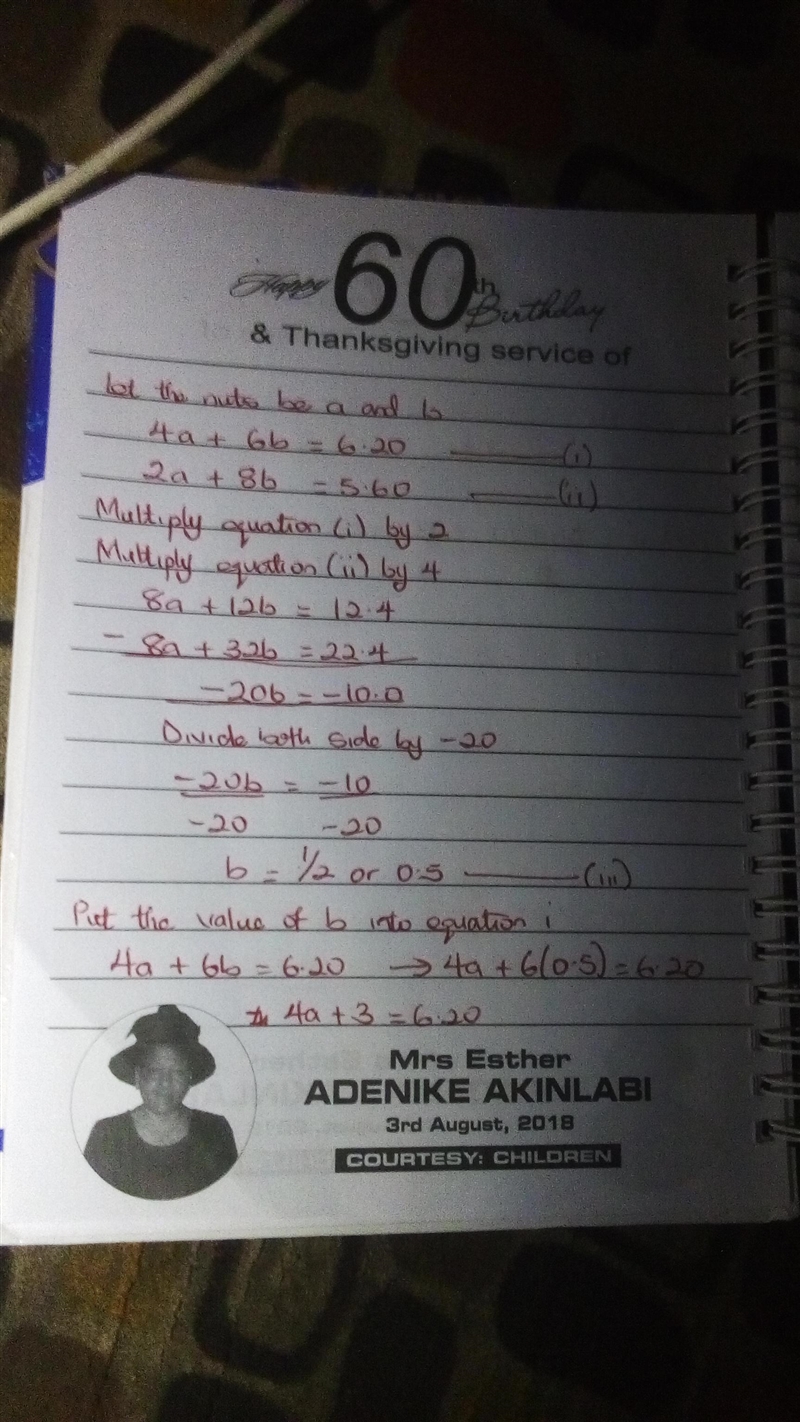 Happy 60th Birthday
& Thanksgiving service of
let the nuts be a and b
4a + 6b = 6.20 (i)
2a + 8b = 5.60 (ii)
Multiply equation (i) by 2
Multiply equation (ii) by 4
8a + 12b = 12.4
- 8a + 32b = 22.4
-20b = -10.0
Divide both side by -20
-20b = -10
-20 -20
b = 1/2 or 0.5 (iii)
Put the value of b into equation i
4a + 6b = 6.20 → 4a + 6(0.5) = 6.20
4a + 3 = 6.20
Mrs Esther
ADENIKE AKINLABI
3rd August, 2018
COURTESY: CHILDREN